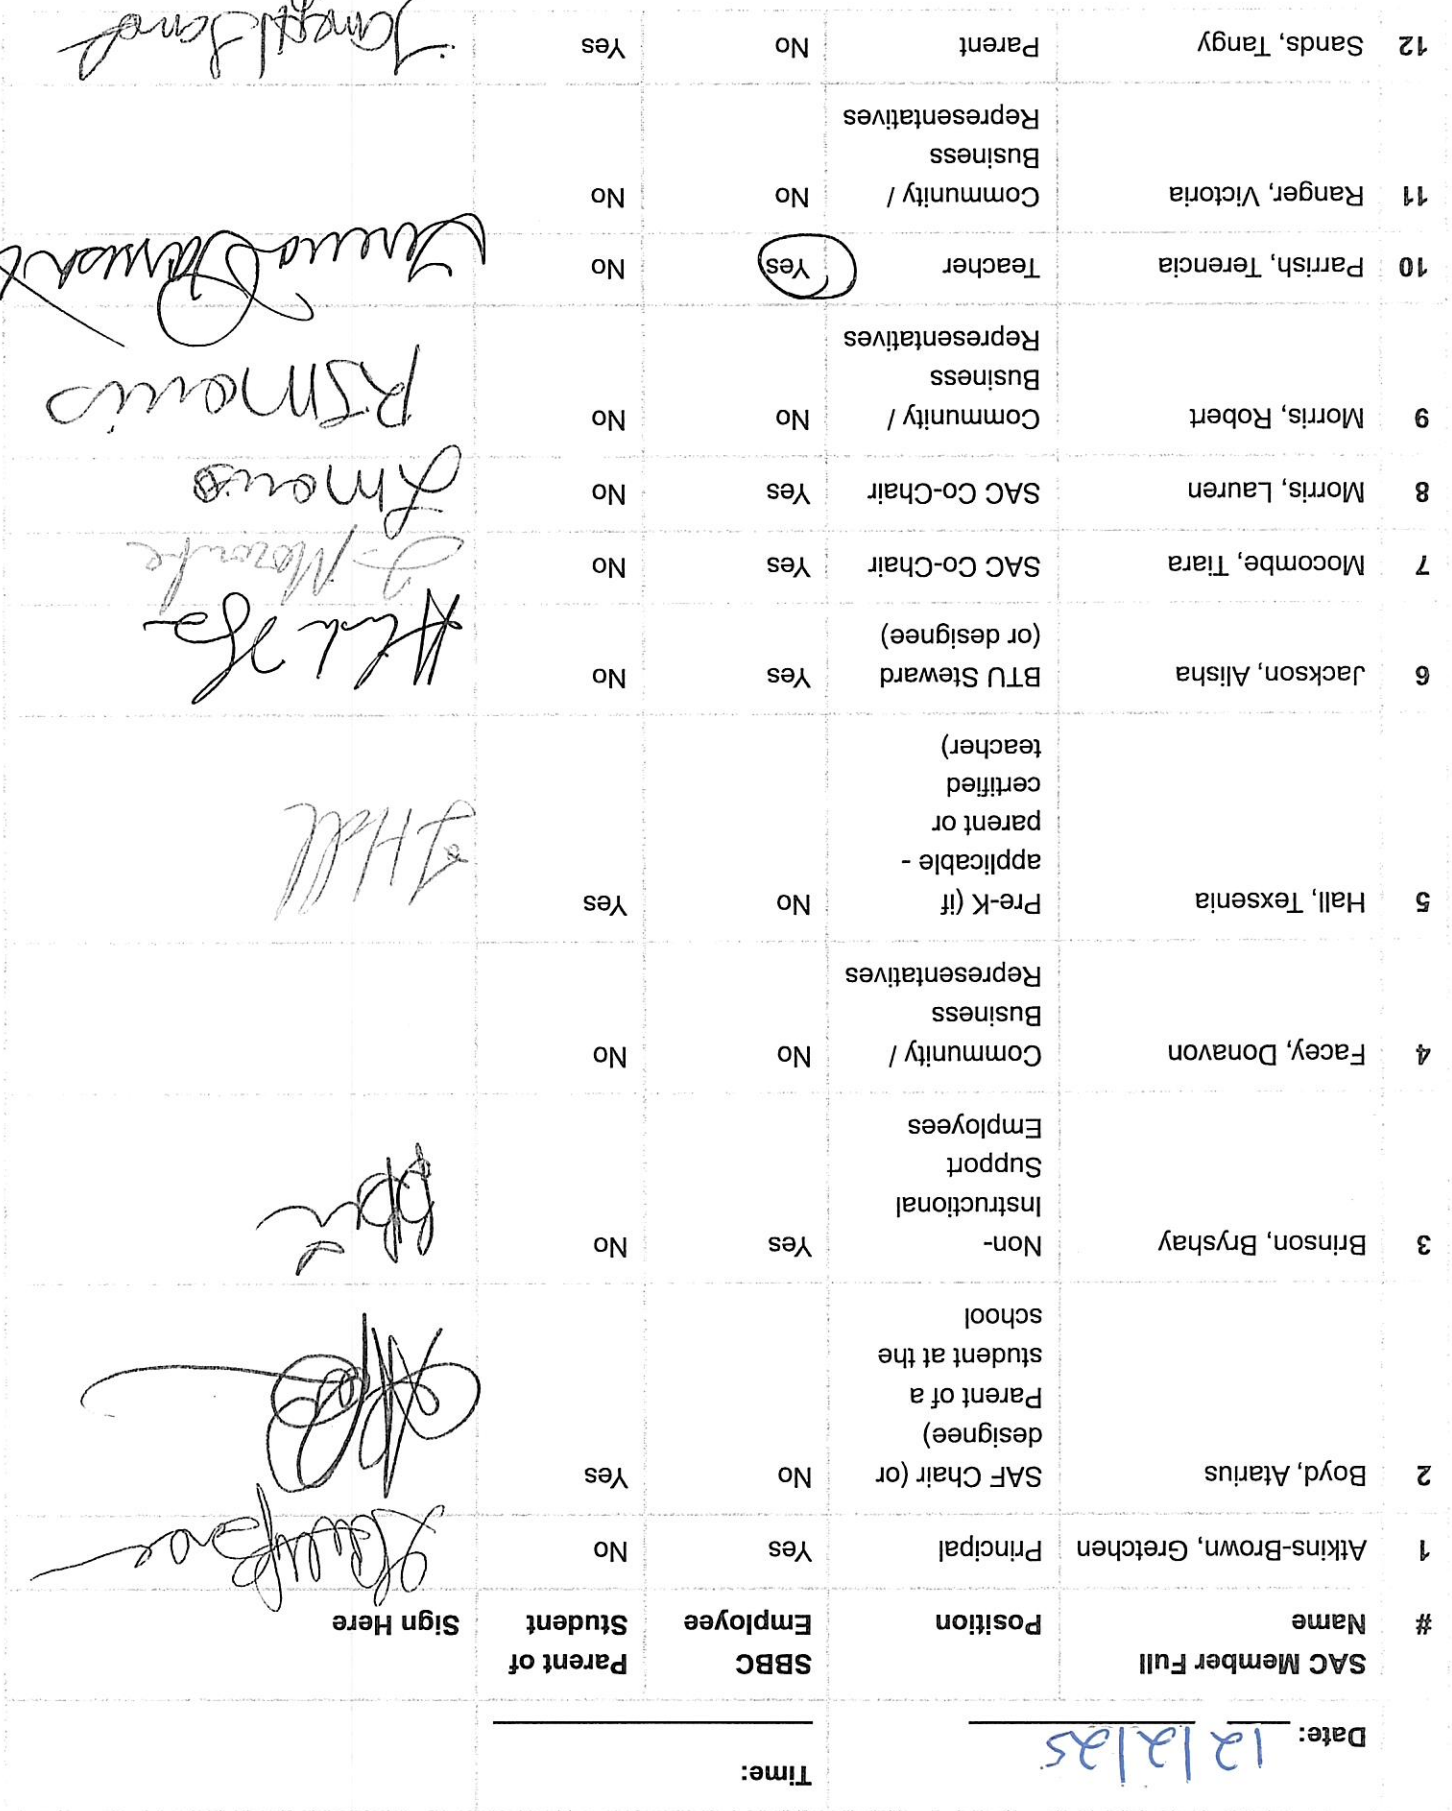 Date: 12/2/25
Time:
# SAC Member Full Name Position SBBC Employee Parent of Student Sign Here
1 Atkins-Brown, Gretchen Principal Yes No
2 Boyd, Atarius SAF Chair (or designee) Parent of a student at the school No Yes
3 Brinson, Bryshay Non-Instructional Support Employees Yes No
4 Facey, Donavon Community / Business Representatives No No
5 Hall, Texsenia Pre-K (if applicable - parent or certified teacher) No Yes THall
6 Jackson, Alisha BTU Steward (or designee) Yes No
7 Mocombe, Tiara SAC Co-Chair Yes No T-Mocombe
8 Morris, Lauren SAC Co-Chair Yes No LMorris
9 Morris, Robert Community / Business Representatives No No RSMorris
10 Parrish, Terencia Teacher Yes No Terencia Parrish
11 Ranger, Victoria Community / Business Representatives No No
12 Sands, Tangy Parent No Yes Tangy Sands